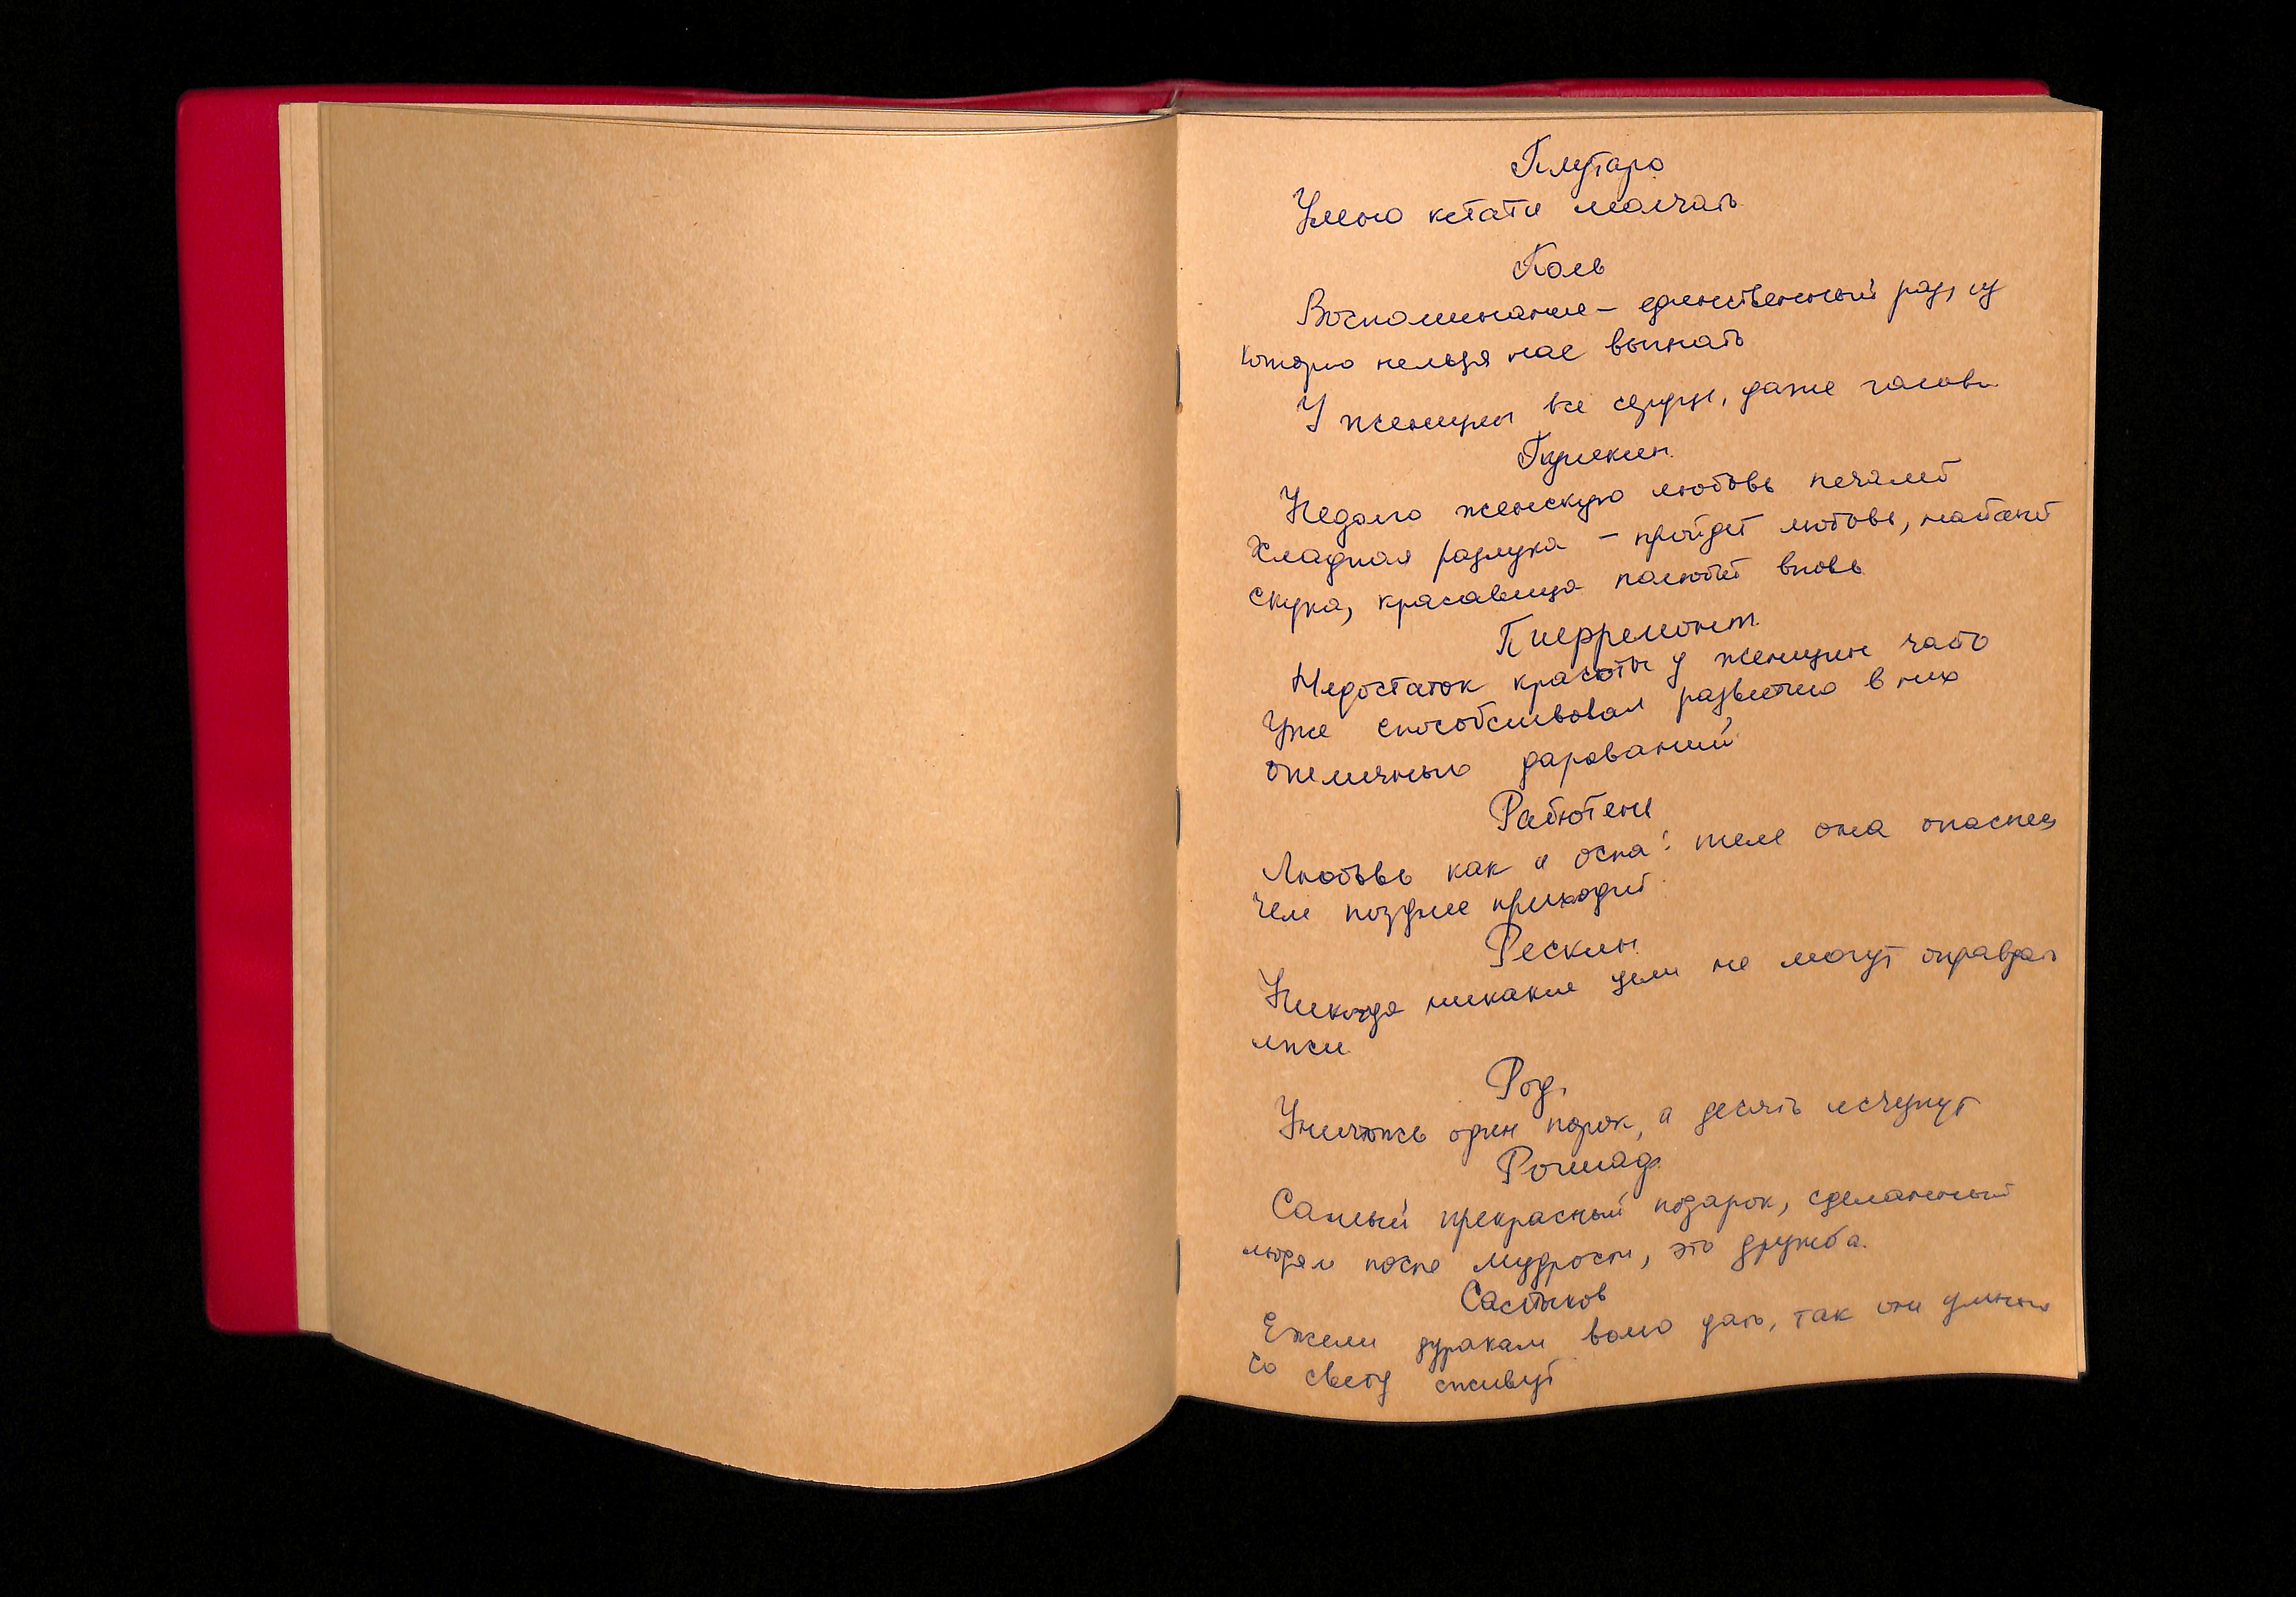 Плутарх
Умею кстати молчать
Поль
Воспоминание – единственный рай, из
которого нельзя нас выгнать
У женщины все сердце, даже голова
Пушкин
Недолго женскую любовь печалит
Хладная разлука – пройдет любовь, настанет
скука, красавица полюбит вновь
Пиерремонт
Недостаток красоты у женщин часто
уже способствовал развитию в них
отличных дарований
Рабютени
Любовь как и оспа: тем она опаснее
чем позднее приходит
Рескин
Никогда никакие цели не могут оправдать
лжи
Род
Уничтожь один порок, а десять исчезнут
Рошад
Самый прекрасный подарок, сделанный
людям после мудрости, это дружба.
Салтыков
Ежели дуракам волю дать, так они умных
со свету сживут